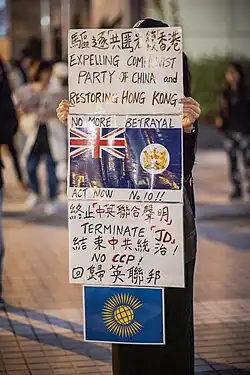 馬區逐共匪光復香港
EXPELLING COMMUNIST
PARTY OF CHINA and
RESTORING HONG KONG
NO MORE BETRAYAL
ACT NOW No.10!!
終止「中英聯合聲明」
TERMINATE「JD」
結束中共統治!
NO CCP!
回歸英聯邦